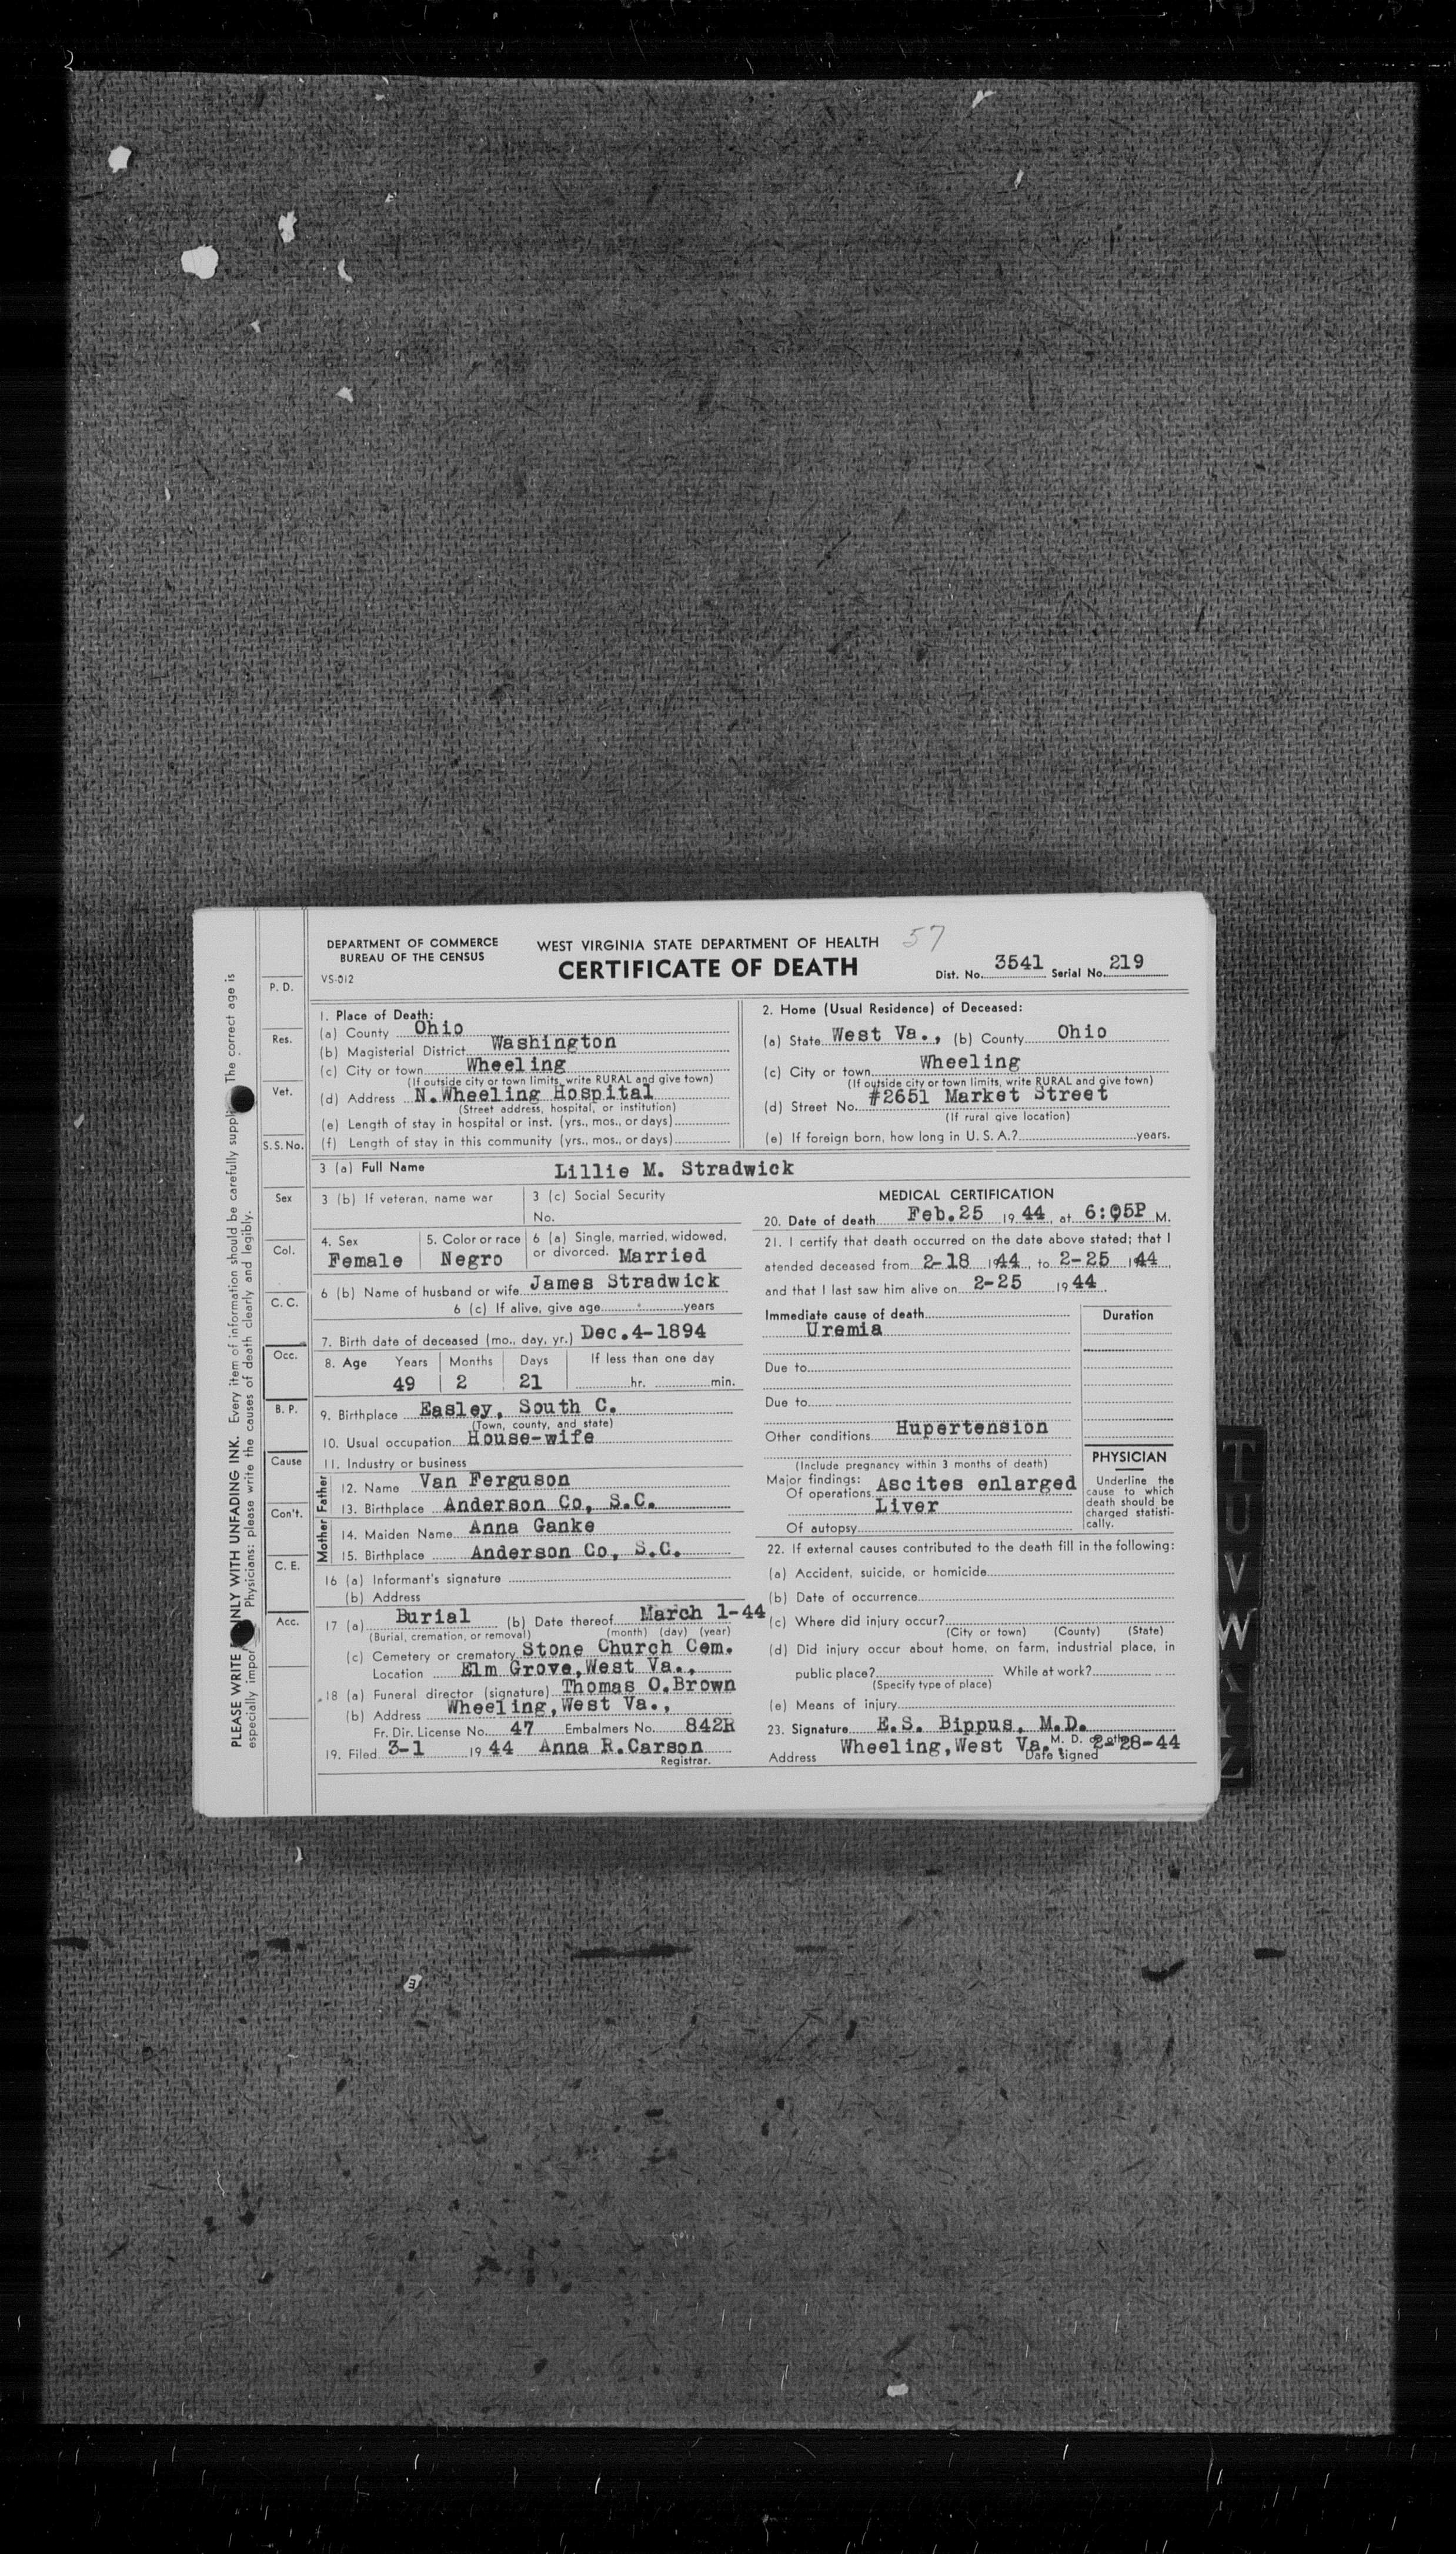 57
DEPARTMENT OF COMMERCE
BUREAU OF THE CENSUS
VS-012
WEST VIRGINIA STATE DEPARTMENT OF HEALTH
CERTIFICATE OF DEATH
Dist. No. 3541 Serial No. 219
PLEASE WRITE PLAINLY WITH UNFADING INK. Every item of information should be carefully supplied. The correct age is
especially important. Physicians: please write the causes of death clearly and legibly.
P. D.
Res.
Vet.
S. S. No.
Sex
Col.
C. C.
Occ.
B. P.
Cause
Con't.
C. E.
Acc.
1. Place of Death:
(a) County Ohio
(b) Magisterial District Washington
(c) City or town Wheeling
(If outside city or town limits, write RURAL and give town)
(d) Address N.Wheeling Hospital
(Street address, hospital, or institution)
(e) Length of stay in hospital or inst. (yrs., mos., or days)
(f) Length of stay in this community (yrs., mos., or days)
2. Home (Usual Residence) of Deceased:
(a) State West Va., (b) County Ohio
(c) City or town Wheeling
(If outside city or town limits, write RURAL and give town)
(d) Street No. #2651 Market Street
(If rural give location)
(e) If foreign born, how long in U. S. A.? years.
3 (a) Full Name Lillie M. Stradwick
3 (b) If veteran, name war
3 (c) Social Security
No.
4. Sex Female
5. Color or race Negro
6 (a) Single, married, widowed,
or divorced. Married
6 (b) Name of husband or wife James Stradwick
6 (c) If alive, give age years
7. Birth date of deceased (mo., day, yr.) Dec.4-1894
8. Age Years Months Days If less than one day
49 2 21 hr. min.
9. Birthplace Easley, South C.
(Town, county, and state)
10. Usual occupation House-wife
11. Industry or business
Father
12. Name Van Ferguson
13. Birthplace Anderson Co, S.C.
Mother
14. Maiden Name Anna Ganke
15. Birthplace Anderson Co, S.C.
16 (a) Informant's signature
(b) Address
17 (a) Burial (b) Date thereof March 1-44
(Burial, cremation, or removal) (month) (day) (year)
(c) Cemetery or crematory Stone Church Cem.
Location Elm Grove,West Va.,
18 (a) Funeral director (signature) Thomas O.Brown
(b) Address Wheeling,West Va.,
Fr. Dir. License No. 47 Embalmers No. 842R
19. Filed 3-1 1944 Anna R.Carson
Registrar.
MEDICAL CERTIFICATION
20. Date of death Feb.25 1944, at 6:05P M.
21. I certify that death occurred on the date above stated; that I
atended deceased from 2-18 1944, to 2-25 1944,
and that I last saw him alive on 2-25 1944.
Immediate cause of death Duration
Uremia
Due to
Due to
Other conditions Hupertension
(Include pregnancy within 3 months of death)
Major findings:
Of operations Ascites enlarged
Liver
Of autopsy
PHYSICIAN
Underline the
cause to which
death should be
charged statisti-
cally.
22. If external causes contributed to the death fill in the following:
(a) Accident, suicide, or homicide
(b) Date of occurrence
(c) Where did injury occur?
(City or town) (County) (State)
(d) Did injury occur about home, on farm, industrial place, in
public place? While at work?
(Specify type of place)
(e) Means of injury
23. Signature E.S. Bippus, M.D.
M. D. or other
Address Wheeling,West Va., Date signed 2-28-44
T
U
V
W
X
Z